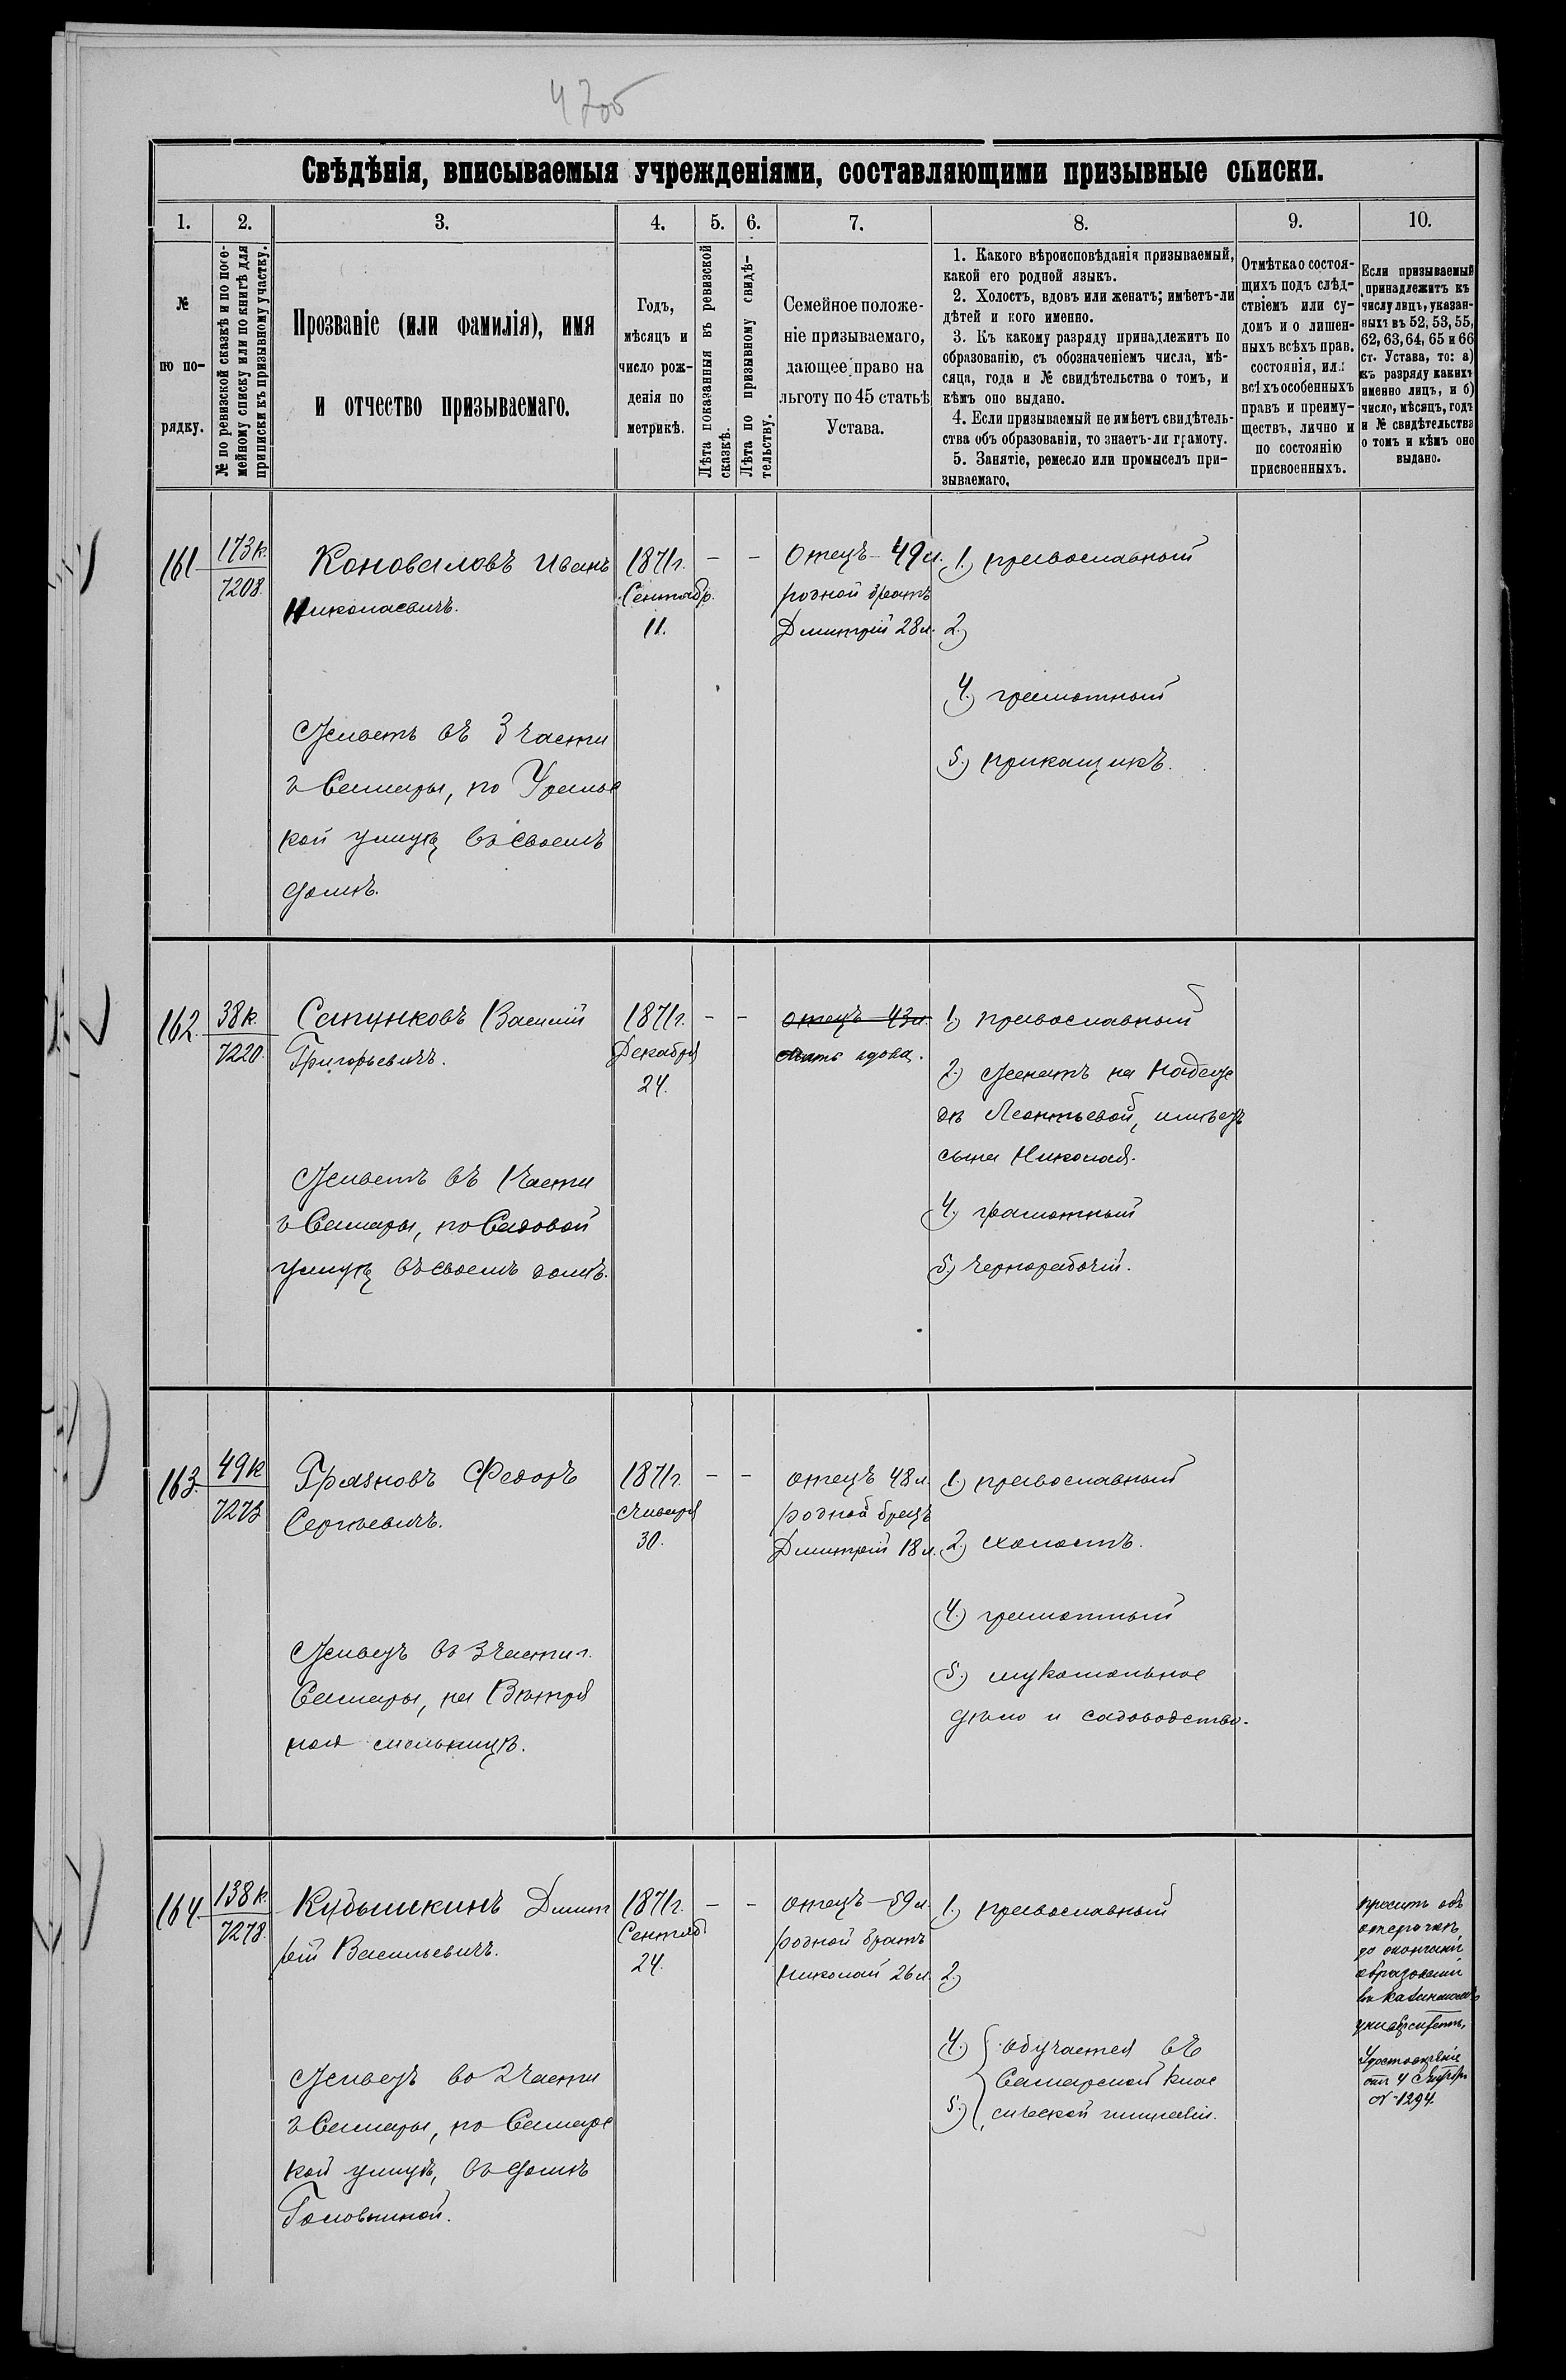 Свѣдѣнія, вписываемыя учрежденіями, составляющими призывные списки.
1. 2. 3. 4. 5. 6. 7. 8. 9. 10.
№
по по-
рядку.
№ по ревизской сказкѣ и по посе-
мейному списку или по книгѣ для
приписки къ призывному участку.
Прозваніе (или фамилія), имя
и отчество призываемаго.
Годъ,
мѣсяцъ и
число рож-
денія по
метрикѣ.
Лѣта показанныя въ ревизской
сказкѣ.
Лѣта по призывному свидѣ-
тельству.
Семейное положе-
ніе призываемаго,
дающее право на
льготу по 45 статьѣ
Устава.
1. Какого вѣроисповѣданія призываемый,
какой его родной языкъ.
2. Холостъ, вдовъ или женатъ; имѣетъ-ли
дѣтей и кого именно.
3. Къ какому разряду принадлежитъ по
образованію, съ обозначеніемъ числа, мѣ-
сяца, года и № свидѣтельства о томъ, и
кѣмъ оно выдано.
4. Если призываемый не имѣетъ свидѣтель-
ства объ образованіи, то знаетъ-ли грамоту.
5. Занятіе, ремесло или промыселъ при-
зываемаго.
Отмѣтка о состоя-
щихъ подъ слѣд-
ствіемъ или су-
домъ и о лишен-
ныхъ всѣхъ прав.
состоянія, или
всѣхъ особенныхъ
правъ и преиму-
ществъ, лично и
по состоянію
присвоенныхъ.
Если призываемый
принадлежитъ къ
числу лицъ, указан-
ныхъ въ 52, 53, 55,
62, 63, 64, 65 и 66
ст. Устава, то: а)
къ разряду какихъ
именно лицъ, и б)
число, мѣсяцъ, годъ
и № свидѣтельства
о томъ и кѣмъ оно
выдано.
161
173 к.
7208.
Коноваловъ Иванъ
Николаевичъ.
Живетъ въ 3 части
г Самары, по Уральс
кой улицѣ въ своемъ
домѣ.
1871 г.
Сентябр.
11.
–
–
Отецъ – 49 л.
родной братъ
Дмитрій 28 л.
1.) православный
2.)
4.) грамотный
5.) прикащикъ.
162.
38 к.
7220.
Сапунковъ Василій
Григорьевичъ.
Живетъ въ 1 части
г Самары, по Садовой
улицѣ въ своемъ домѣ.
1871 г.
Декабря
24.
–
–
отецъ 43 л.
мать вдова.
1.) православный
2.) женатъ на Надеж
дѣ Леонтьевой, имѣетъ
сына Николая.
4.) грамотный
5.) чернорабочій.
163.
49 к
7273
Грязновъ Федоръ
Сергѣевичъ.
Живетъ въ 3 части г.
Самары, на Вѣтря
ной мельницѣ.
1871 г.
Января
30.
–
–
отецъ 48 л.
родной братъ
Дмитрій 18 л.
1.) православный
2.) холостъ.
4.) грамотный
5.) мукомольное
дѣло и садоводство.
164
138 к.
7278.
Кубышкинъ Дмит
рій Васильевичъ.
Живетъ во 2 части
г Самары, по Самарс
кой улицѣ, въ домѣ
Головкиной.
1871 г.
Сентяб
24.
–
–
отецъ – 59 л.
родной братъ
Николай 26 л.
1.) православный
2.)
4.) обучается въ
Самарской Клас
5.) сической гимназіи.
проситъ объ
отсрочкѣ
до окончанія
образованія
въ Казанскомъ
университетѣ,
от 4
№ 1294.